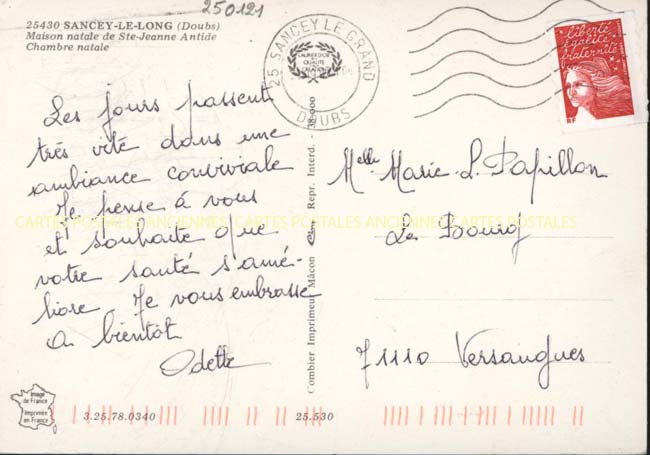 250121
25430 SANCEY-LE-LONG (Doubs)
Maison natale de Ste-Jeanne Antide
Chambre natale
25 SANCEY LE GRAND
DOUBS
liberté
égalité
fraternité
RF
Les jours passent
très vite dans une
ambiance conviviale
Je pense à vous
et souhaite que
votre santé s'amé-
liore. Je vous embrasse
A bientôt
Odette
Melle Marie-L. Papillon
Le Bourg
71110 Versaugues
CARTES POSTALES ANCIENNES CARTES POSTALES ANCIENNES CARTES POSTALES
Combier Imprimeur Mâcon Repr. Interd. - 38.000
Image
de France
Imprimée
en France
3.25.78.0340
25.530